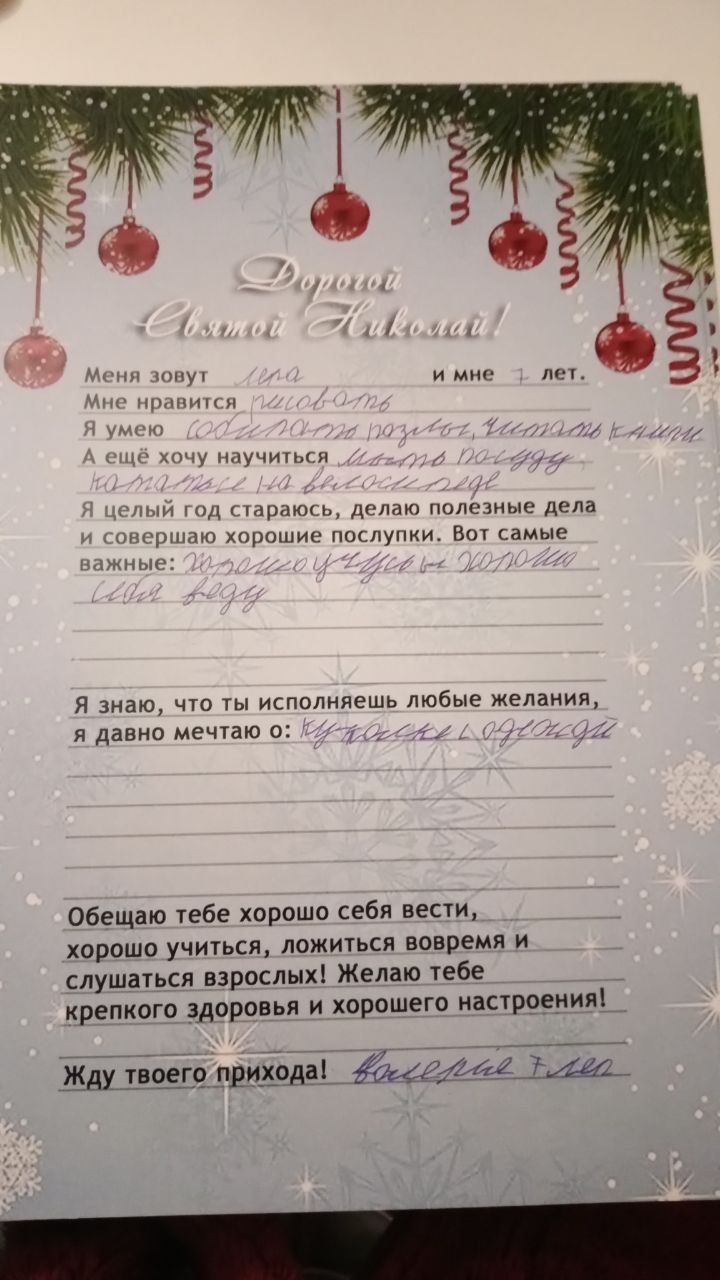 Дорогой
Святой Николай!
Меня зовут лера и мне 7 лет.
Мне нравится рисовать
Я умею собирать пазлы, читать книги
А ещё хочу научиться мыть посуду,
кататься на велосипеде
Я целый год стараюсь, делаю полезные дела
и совершаю хорошие послупки. Вот самые
важные: хорошо учусь и хорошо
себя веду
Я знаю, что ты исполняешь любые желания,
я давно мечтаю о: одежди
Обещаю тебе хорошо себя вести,
хорошо учиться, ложиться вовремя и
слушаться взрослых! Желаю тебе
крепкого здоровья и хорошего настроения!
Жду твоего прихода! Валерія 7 лет